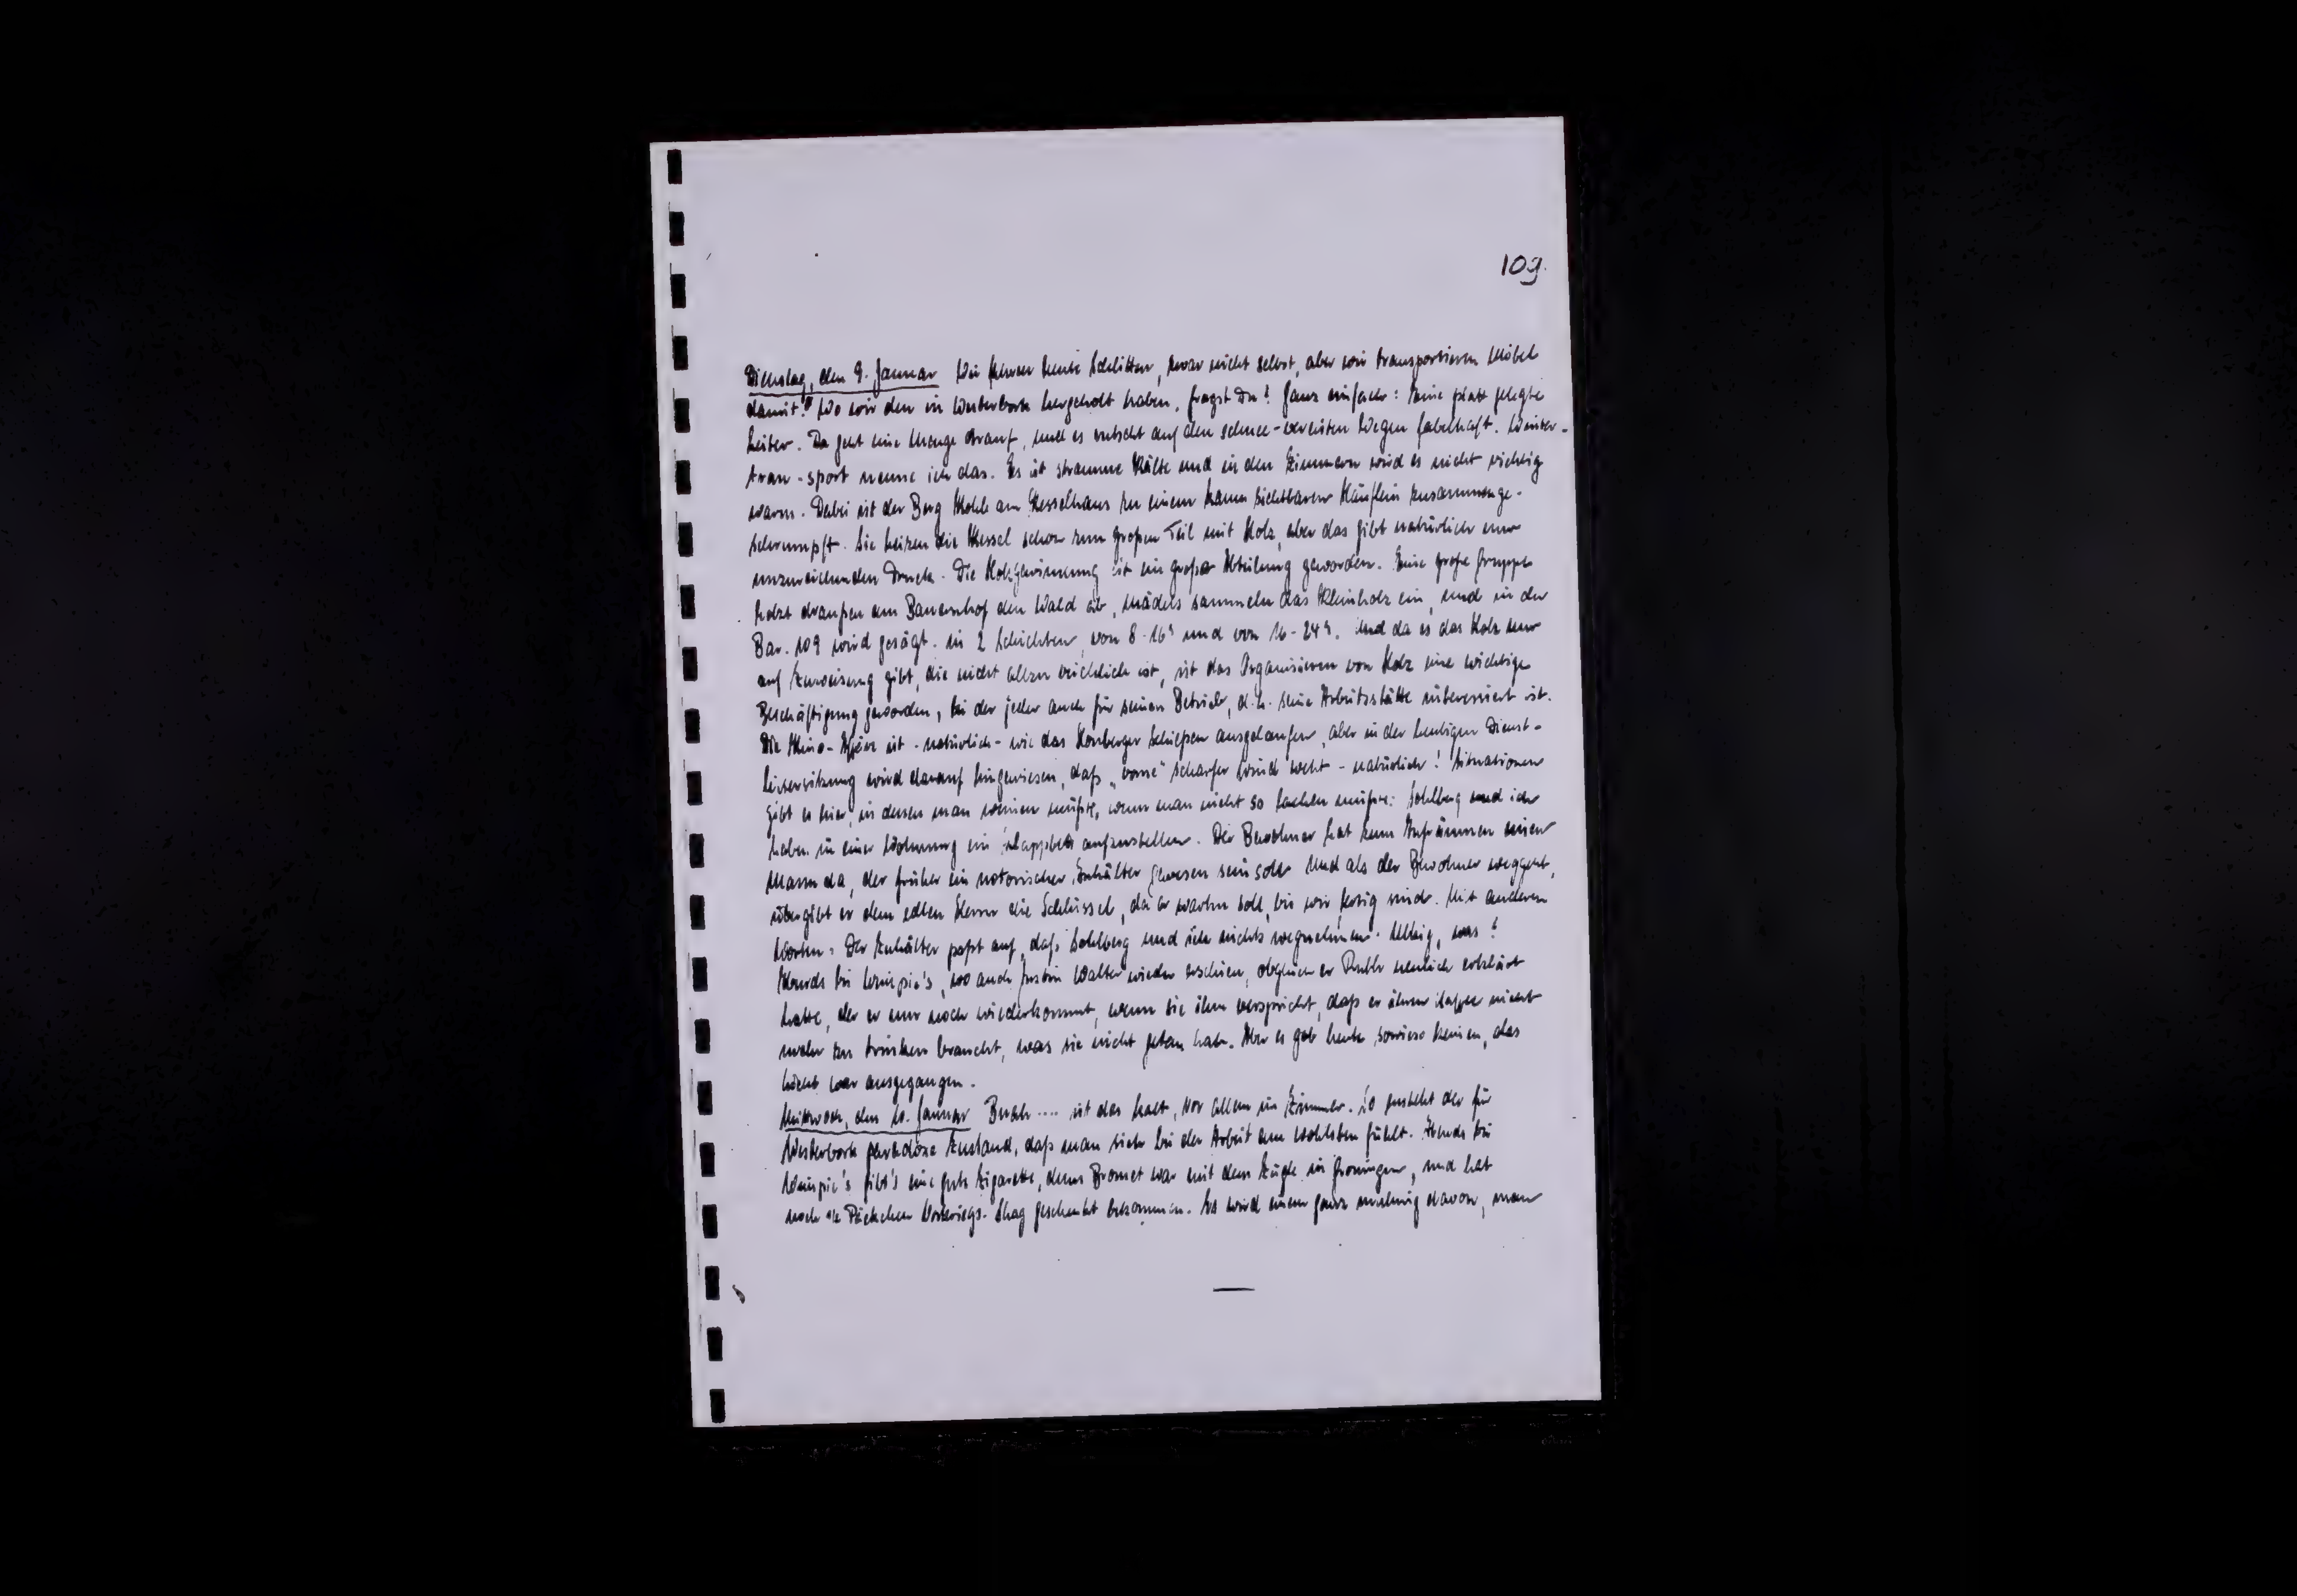 109.
Dienstag, den 9. Januar Wir fahren heute Schlitten, zwar nicht selbst, aber wir transportieren Möbel
damit! Wo wir den in Westerbork hergeholt haben, fragst Du? Ganz einfach: Eine platt gelegte
Leiter. Da geht eine Menge drauf, und es rutscht auf den schnee-vereisten Wegen fabelhaft. Winter-
tran-sport nenne ich das. Es ist stramme Kälte und in den Zimmern wird es nicht richtig
warm. Dabei ist der Berg Kohle am Kesselhaus zu einem kaum sichtbaren Häuflein zusammenge-
schrumpft. Sie heizen die Kessel schon zum großen Teil mit Holz, aber das gibt natürlich nur
unzureichenden Druck. Die Holzgewinnung ist ein große Abteilung geworden. Eine große Gruppe
holzt draußen am Bauernhof den Wald ab, Mädels sammeln das Kleinholz ein, und in der
Bar. 109 wird gesägt. in 2 Schichten, von 8-16h und von 16-24h. Und da es das Holz nur
auf Zuweisung gibt, die nicht allzu reichlich ist, ist das Organisieren von Holz eine wichtige
Beschäftigung geworden, bei der jeder auch für seinen Betrieb, d.h. seine Arbeitsstätte interessiert ist.
Die Kino-Affäre ist - natürlich - wie das Hornberger Schießen ausgelaufen, aber in der heutigen Dienst-
leitersitzung wird darauf hingewiesen, daß „vorne" scharfer Wind weht - natürlich! Situationen
gibt es hier, in denen man weinen müßte, wenn man nicht so lachen müßte: Sohlberg und ich
haben in einer Wohnung ein Klappbett aufzustellen. Der Bewohner hat zum Aufräumen einen
Mann da, der früher ein notorischer Zuhälter gewesen sein soll. Und als der Bewohner weggeht,
übergibt er dem edlen Herrn die Schlüssel, da er warten soll, bis wir fertig sind. Mit anderen
Worten: Der Zuhälter paßt auf, daß Sohlberg und ich nichts wegnehmen. Ulkig, was?
Abends bei Weinpie's, wo auch Justin Walter wieder erschien, obgleich er Ruth neulich erklärt
hatte, der er nur noch wiederkommt, wenn sie ihm verspricht, daß er ihren Kaffee nicht
mehr zu trinken braucht, was sie nicht getan hat. Aber es gab heute sowieso keinen, das
Licht war ausgegangen.
Mittwoch, den 10. Januar Brah .... ist das kalt, vor allem im Zimmer. So entsteht der für
Westerbork paradoxe Zustand, daß man sich bei der Arbeit am wohlsten fühlt. Abends bei
Weinpie's gibt's eine gute Zigarette, denn Bromet war mit dem Zuge in Groningen, und hat
noch ein Päckchen Vorkriegs-Shag geschenkt bekommen. Es wird einem ganz mulmig davon, man